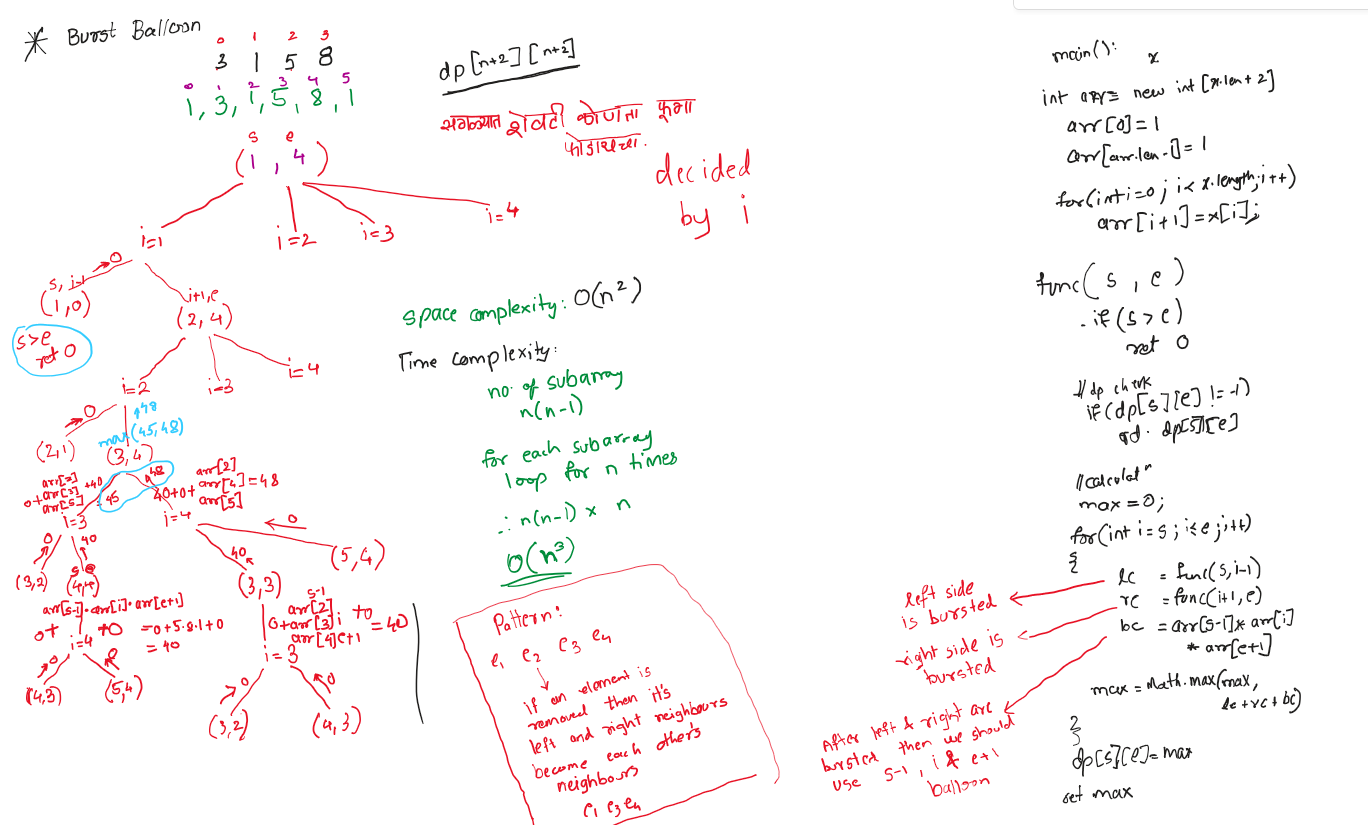 * Burst Balloon
0 1 2 3
3 1 5 8
0 1 2 3 4 5
1, 3, 1, 5, 8, 1
s e
(1, 4)
i=1
i=2
i=3
i=4
0
s, i-1
(1,0)
s>e
ret 0
i+1,e
(2, 4)
i=2
i=3
i=4
0
(2,1)
48
max(45,48)
(3,4)
arr[2]
0+arr[3] +40
arr[5] = 45
48
i=3
arr[2]
40+0+ arr[4] = 48
arr[5]
i=4
0
40
(3,2)
s e
(4,4)
arr[s-1]*arr[i]*arr[e+1]
0+ +0 =0+5*8*1+0
= 40
i=4
0
0
(4,3)
(5,4)
0
40
(5,4)
(3,3)
s-1
arr[2]
0+arr[3] i +0 = 40
arr[4] e+1
i=3
0
0
(3,2)
(4,3)
dp[n+2][n+2]
सगळ्यात शेवटी कोणता फुगा
फोडायचा.
decided
by i
space complexity: O(n²)
Time complexity:
no. of subarray
n(n-1)
for each subarray
loop for n times
∴ n(n-1) x n
O(n³)
Pattern:
e1 e2 e3 e4
if an element is
removed then it's
left and right neighbours
become each other's
neighbours
e1 e3 e4
main(): x
int arr = new int [x.len + 2]
arr[0]=1
arr[arr.len-1]=1
for(int i=0; i< x.length; i++)
arr[i+1]=x[i];
func(s, e)
if (s>e)
ret 0
// dp check
if(dp[s][e] != -1)
rd. dp[s][e]
//calculatⁿ
max=0;
for(int i=s; i≤e; i++)
{
lc = func(s,i-1)
rc = func(i+1,e)
bc = arr[s-1]* arr[i]
* arr[e+1]
max = Math.max(max,
lc+rc+bc)
}
dp[s][e]=max
ret max
left side
is bursted
right side is
bursted
After left & right are
bursted then we should
use s-1, i & e+1
balloon